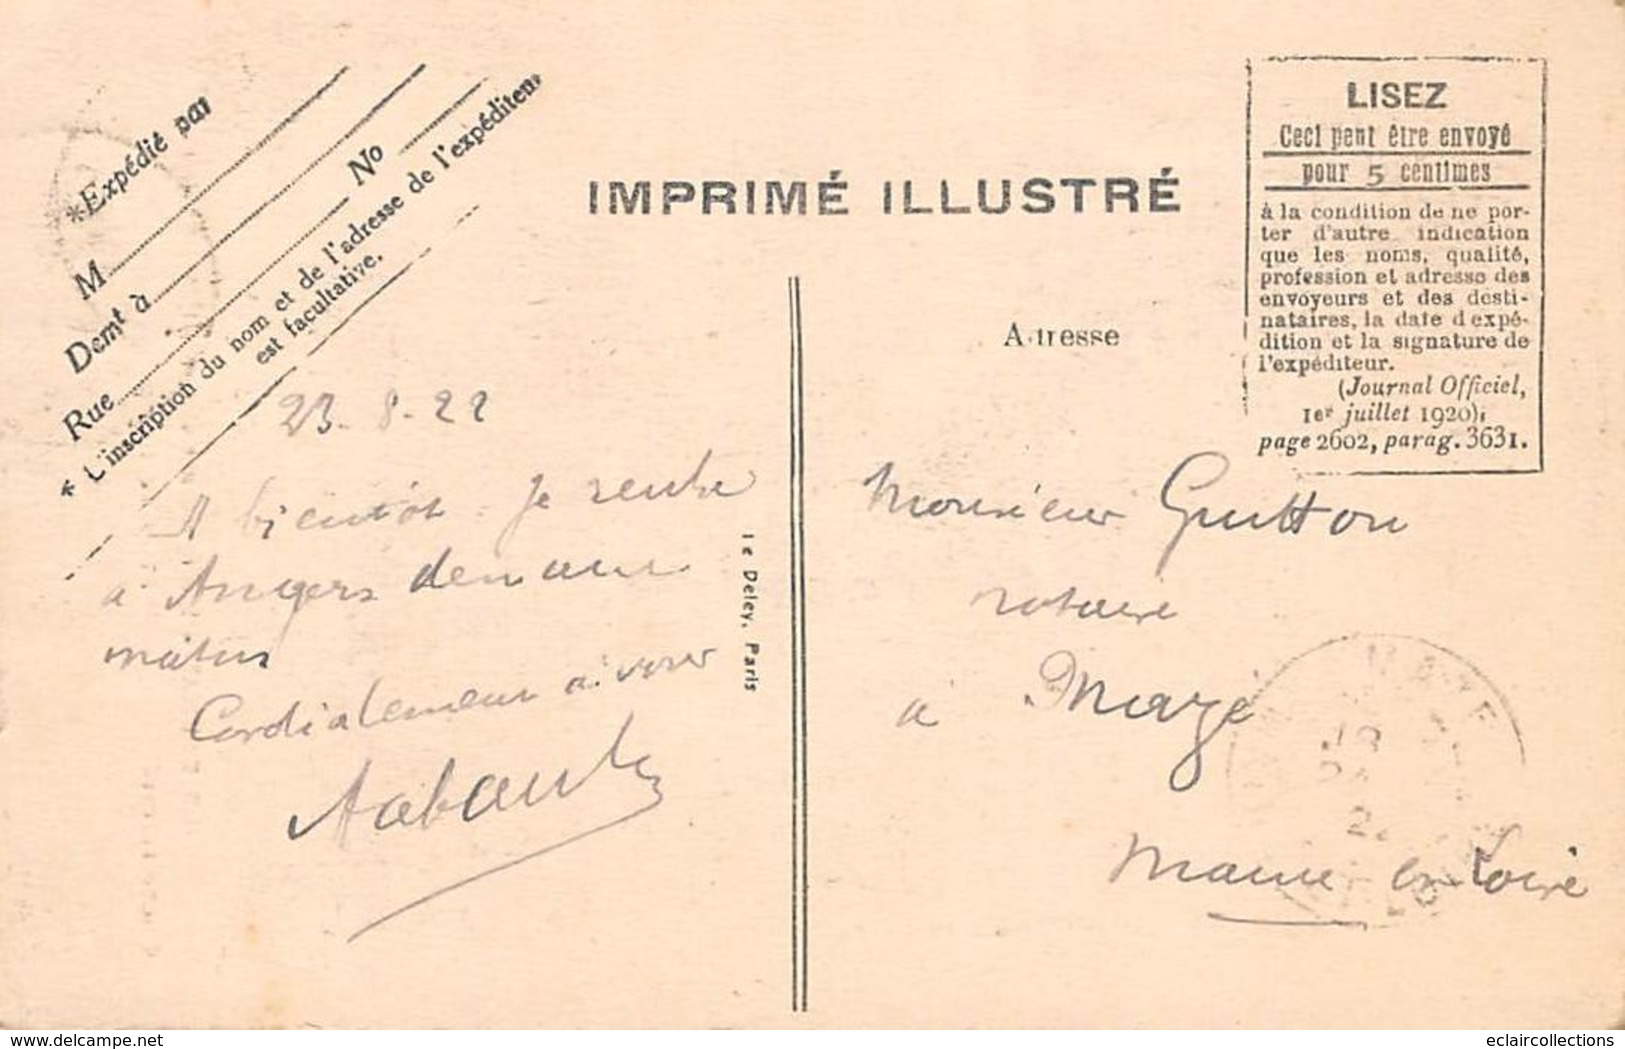 *Expédié par
M
Demt à
Rue
No
* L'inscription du nom et de l'adresse de l'expéditeur
est facultative.
IMPRIMÉ ILLUSTRÉ
LISEZ
Ceci peut être envoyé
pour 5 centimes
à la condition de ne por-
ter d'autre indication
que les noms, qualité,
profession et adresse des
envoyeurs et des desti-
nataires, la date d'expé-
dition et la signature de
l'expéditeur.
(Journal Officiel,
1er juillet 1920),
page 2602, parag. 3631.
Adresse
23-8-22
A bientôt - Je rentre
à Angers demain
matin
Cordialement à vous
le Deley, Paris
Monsieur Guitton
notaire
à Mazé
Maine et Loire
MAZE
delcampe.net
eclaircollections